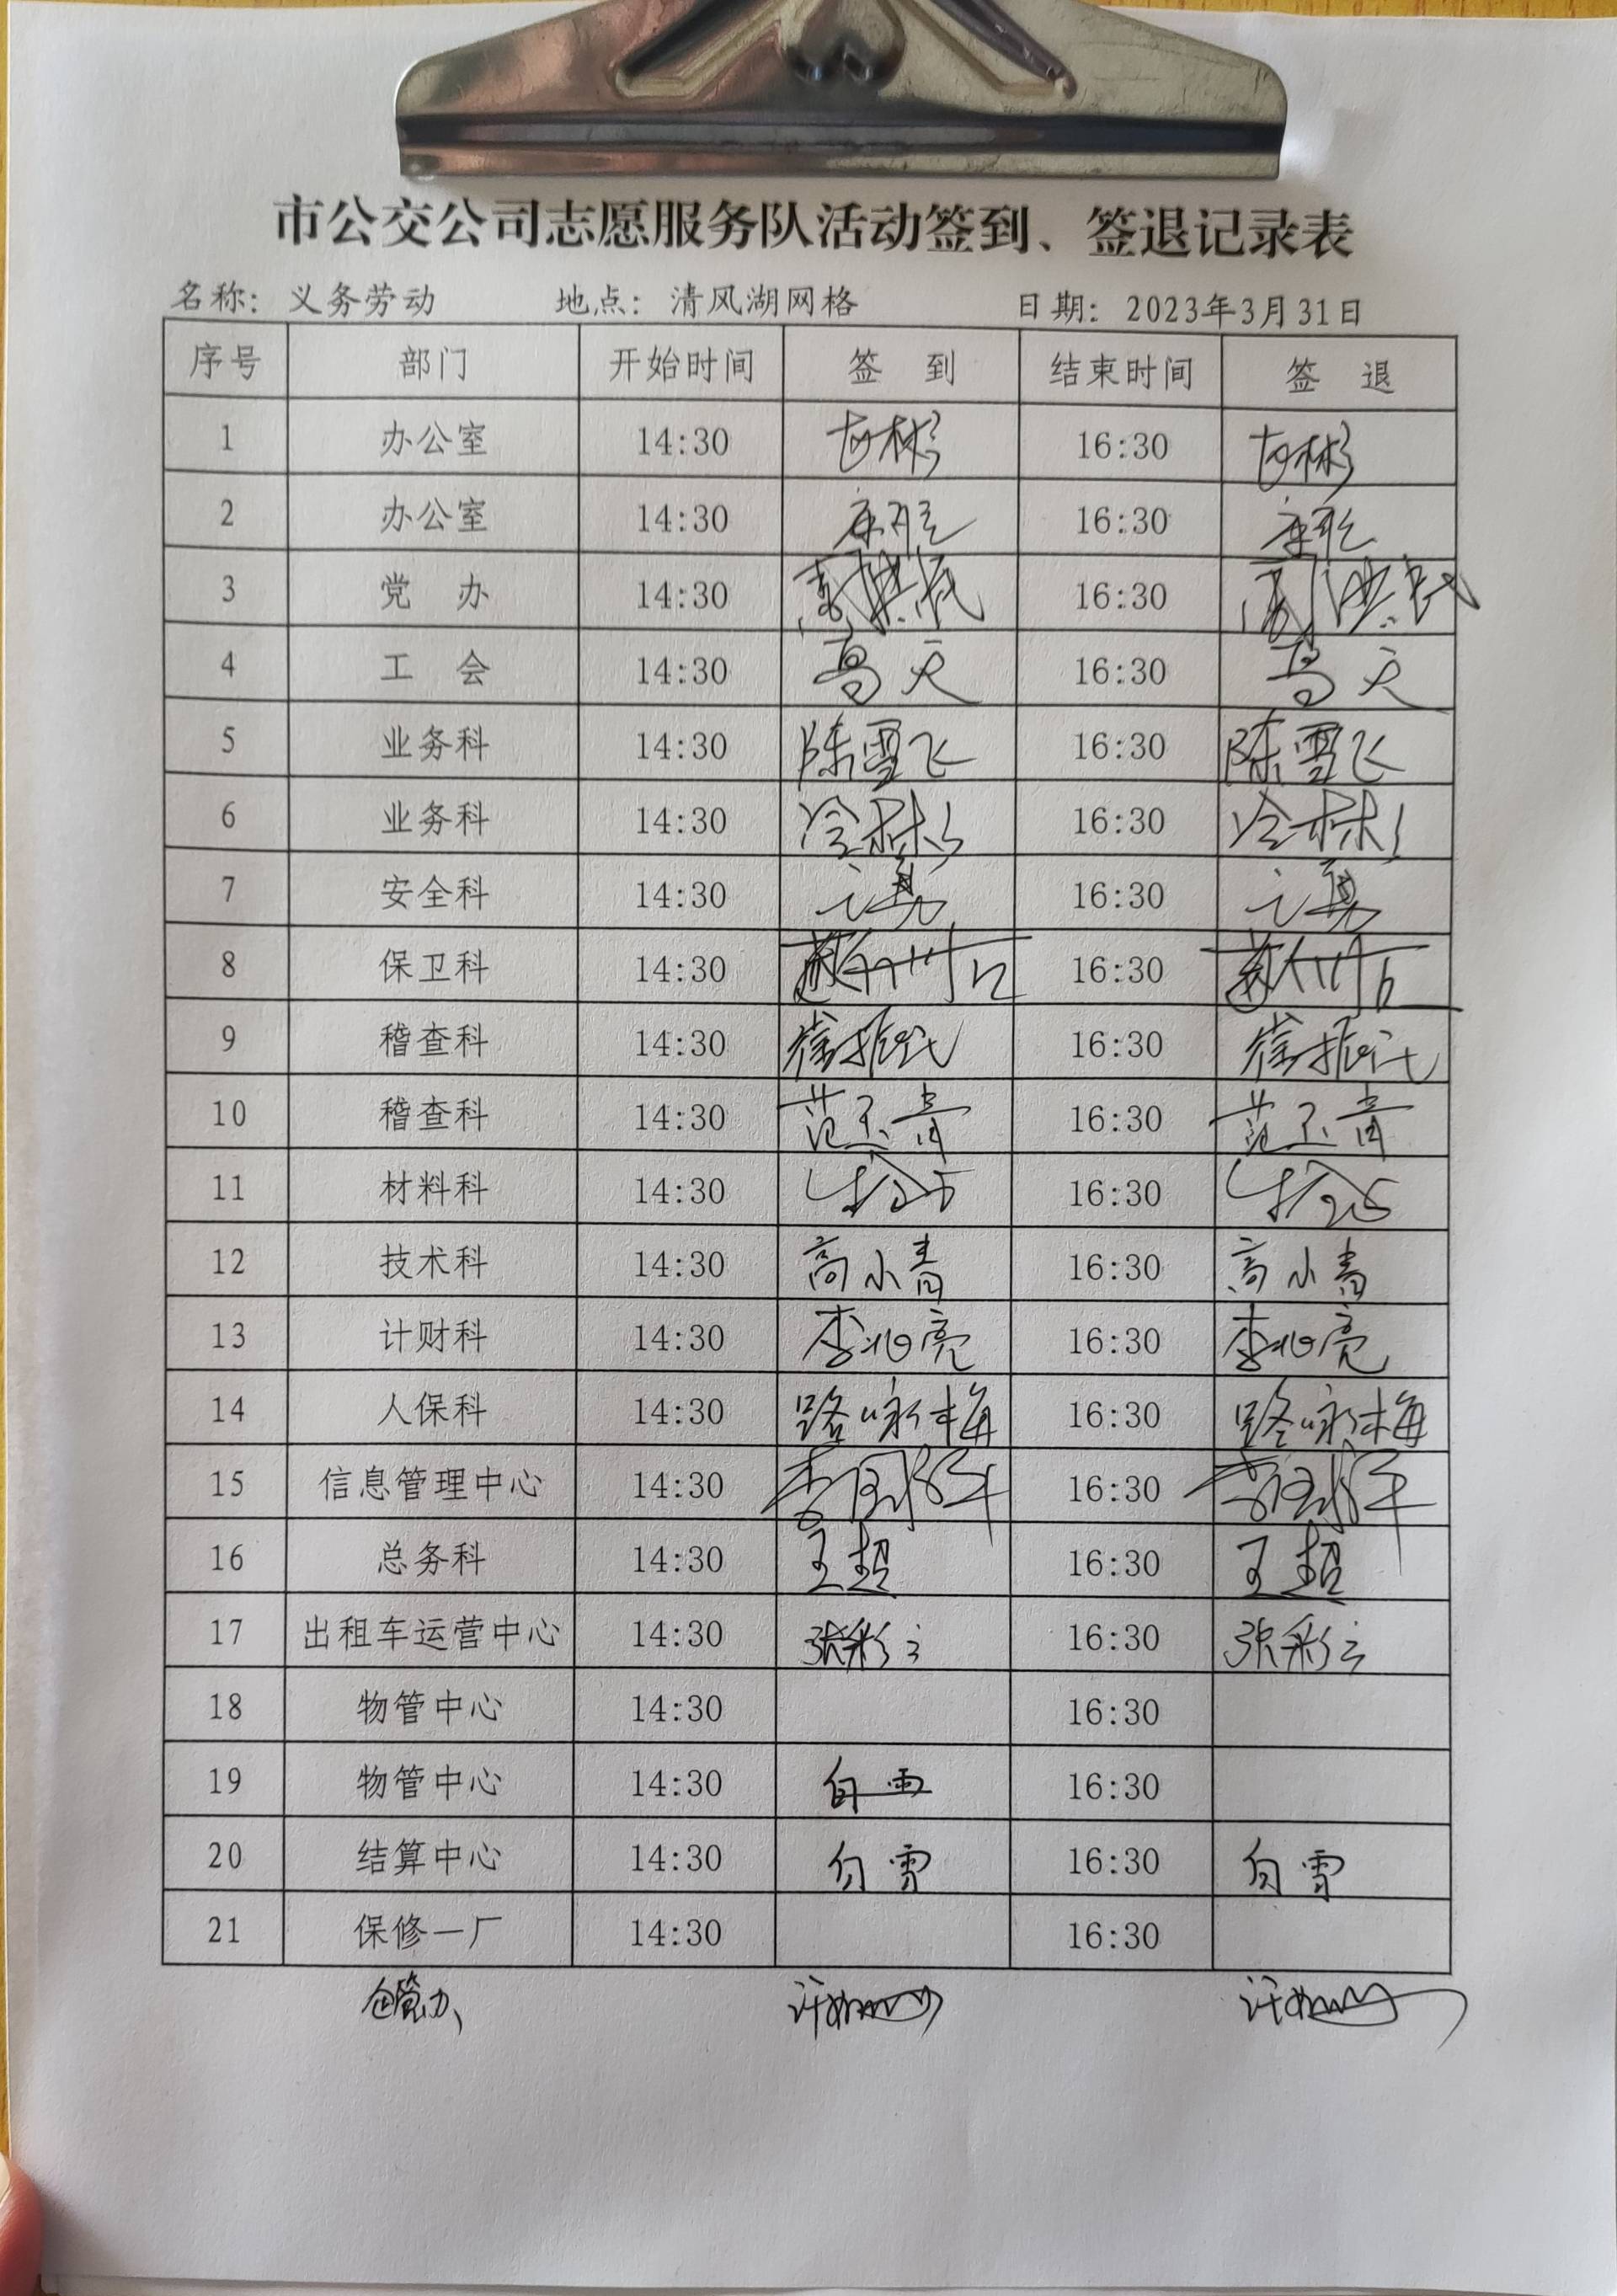 市公交公司志愿服务队活动签到、签退记录表
名称：义务劳动 地点：清风湖网格 日期：2023年3月31日
序号 部门 开始时间 签 到 结束时间 签 退
1 办公室 14:30 16:30
2 办公室 14:30 16:30
3 党 办 14:30 16:30
4 工 会 14:30 高天 16:30 高天
5 业务科 14:30 陈雪飞 16:30 陈雪飞
6 业务科 14:30 冷彬 16:30 冷彬
7 安全科 14:30 16:30
8 保卫科 14:30 16:30
9 稽查科 14:30 16:30
10 稽查科 14:30 范玉青 16:30 范玉青
11 材料科 14:30 16:30
12 技术科 14:30 高小青 16:30 高小青
13 计财科 14:30 李兆亮 16:30 李兆亮
14 人保科 14:30 路咏梅 16:30 路咏梅
15 信息管理中心 14:30 16:30
16 总务科 14:30 王超 16:30 王超
17 出租车运营中心 14:30 张彩云 16:30 张彩云
18 物管中心 14:30 16:30
19 物管中心 14:30 白雪 16:30
20 结算中心 14:30 白雪 16:30 白雪
21 保修一厂 14:30 16:30